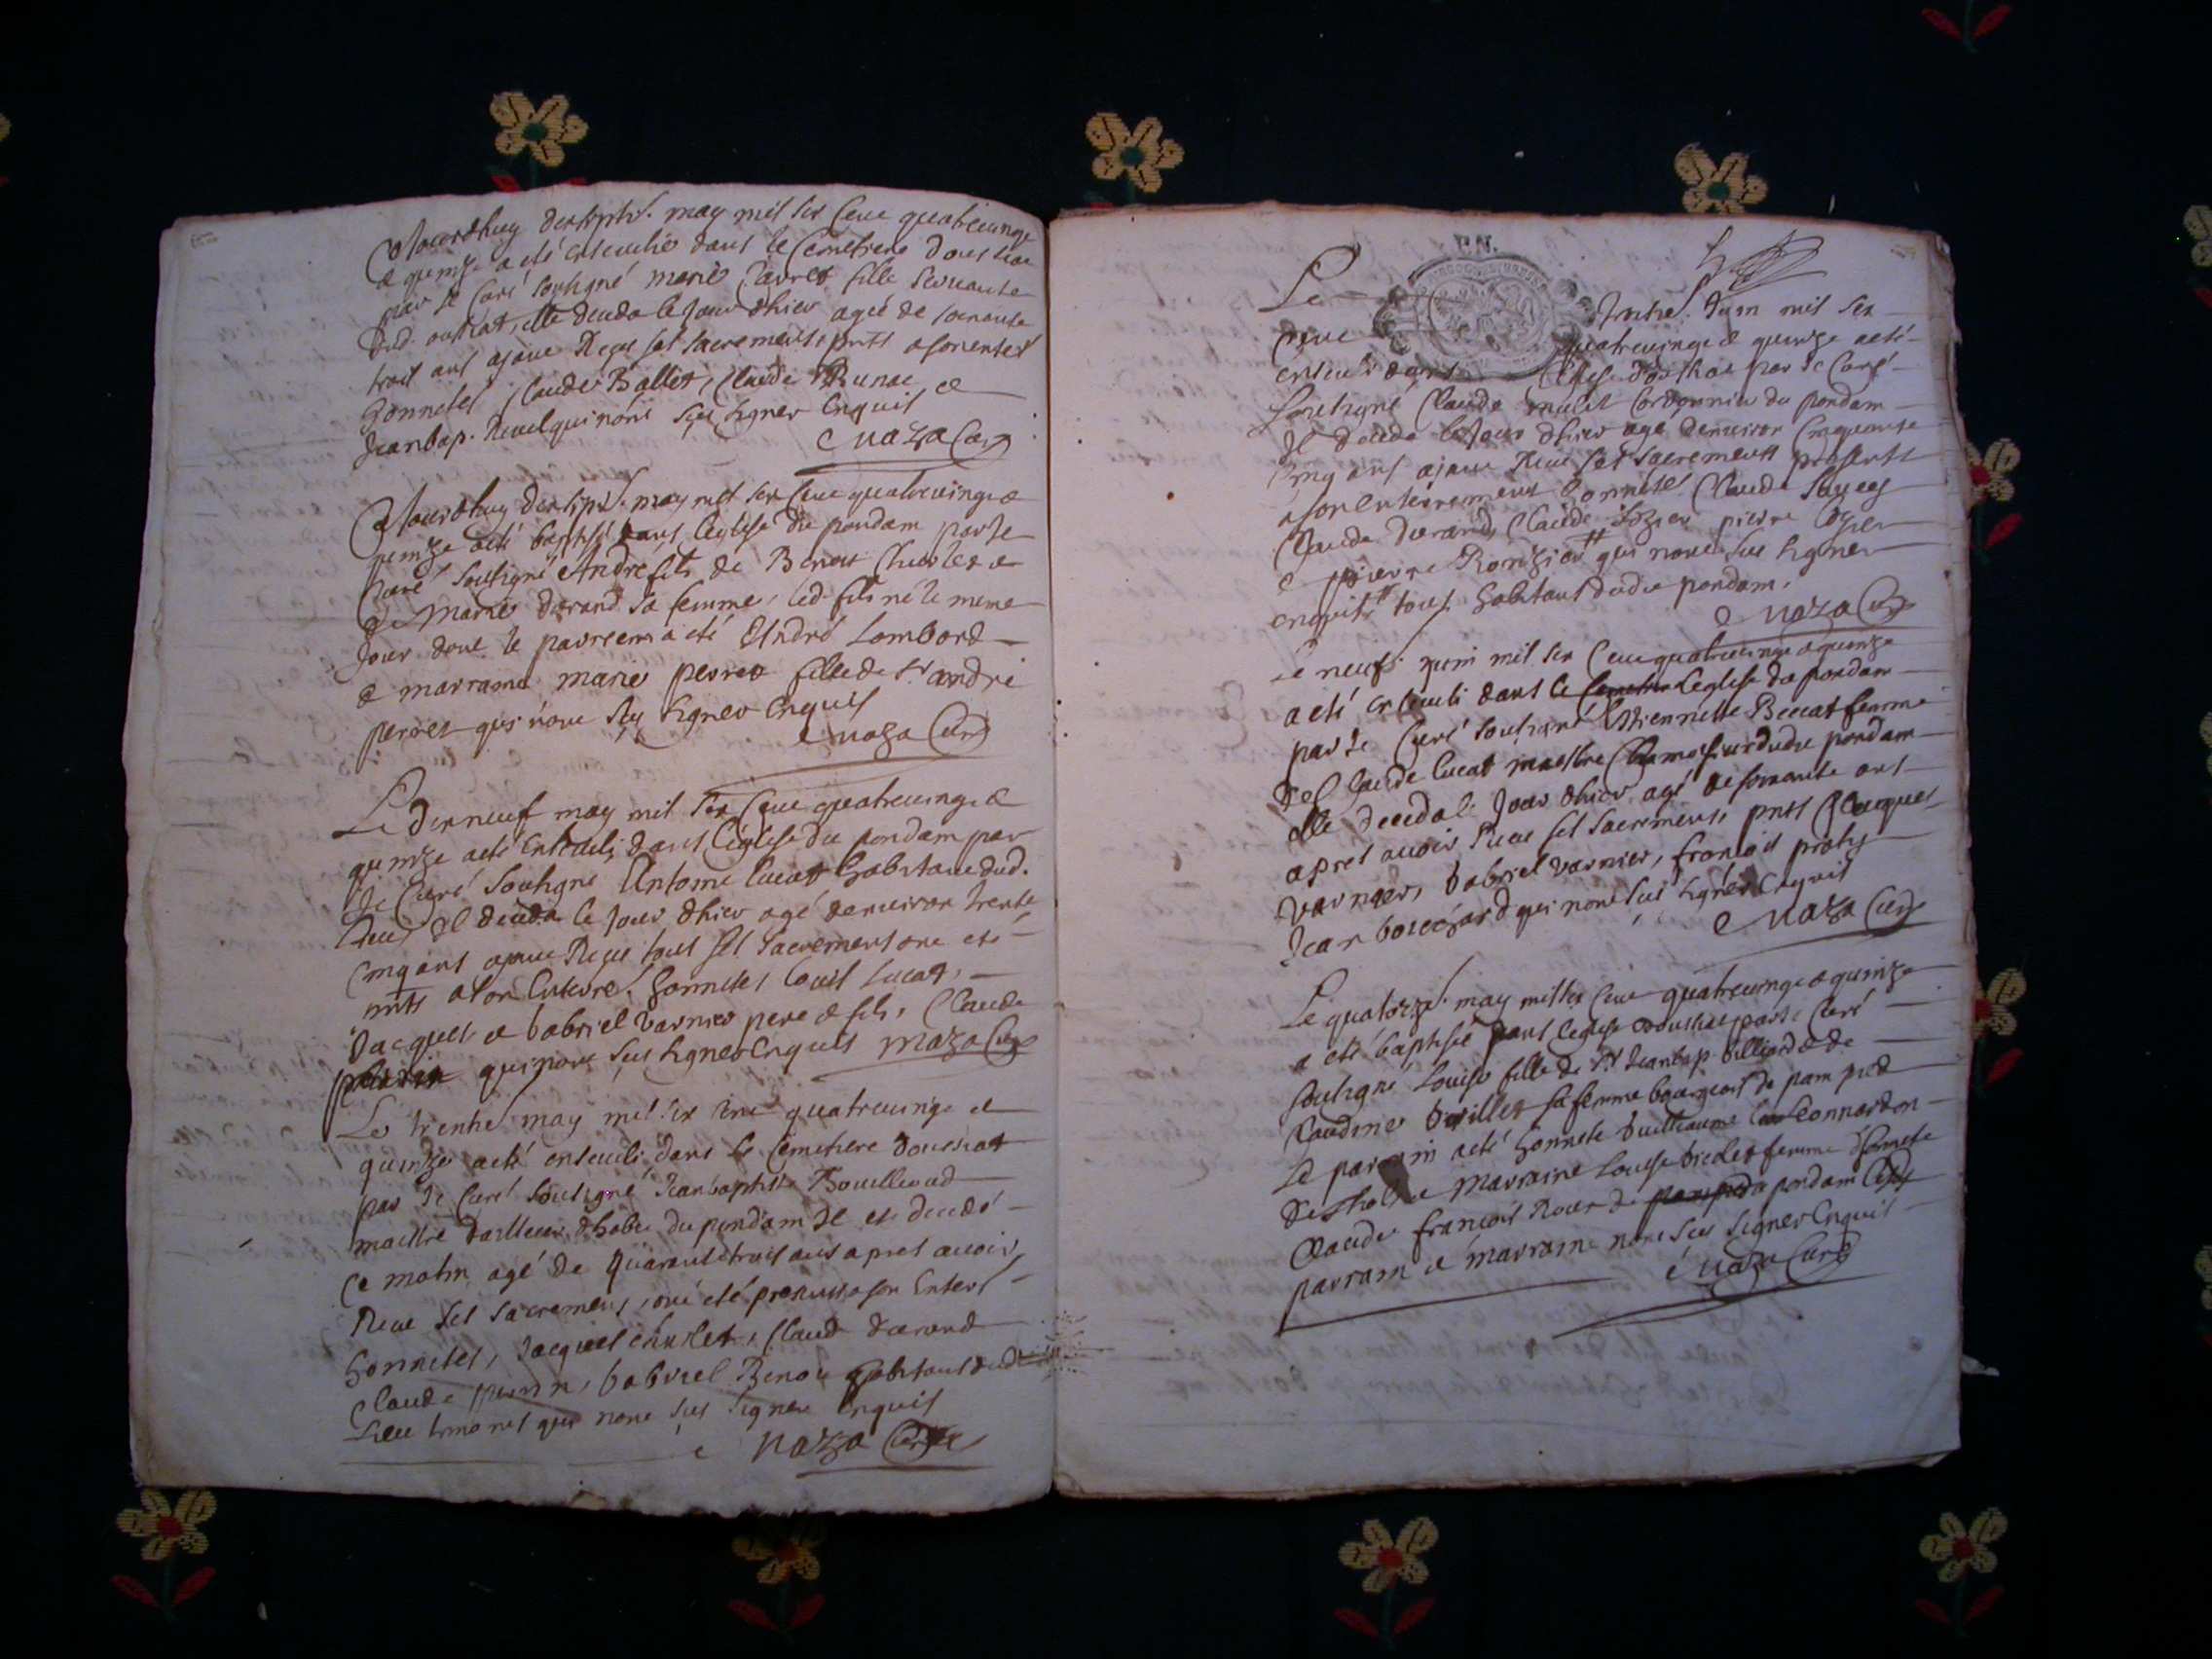 Aujourdhuy dixsept. may mil six Cent quatrevinge
e quinze a eté ensevelie dans le Cemetiere doussiat
par le Curé soussigné marie Cavret fille servante
dud. oussiat, elle deceda le Jour dhier agée de soixante
trois ans ajant Reçeu ses sacrements pnts a son enterr
honnetes Claude Ballet, Claude Brunet e
Jeanbap. Revel qui nont sçu signer Enquis
Maza Curé
Aujourdhuy dixsept. may mil six Cent quatrevinge e
quinze a eté baptisé dans leglise du pondain par le
Curé soussigné André fils de Benoit Charlet e
de Marie durand sa femme, led. fils né le meme
Jour dont le parrein a eté André Lombard
e marraine marie perret fille de sr. andré
perret qui nont sçu signer Enquis
Maza Curé
Le dixneuf may mil six Cent quatrevinge e
quinze a eté Enseveli dans léglise du pondain par
le Curé soussigné Antoine Cucat habitant dud.
lieu, Il deceda le Jour dhier agé denviron trente
Cinq ans ajant Reçeu tous ses sacrements ont eté
pnts a son Enterre. honnetes Louis Lucat,
Jacques e Gabriel varnier pere e fils, Claude
perrin qui nont sçu signer Enquis Maza Curé
Le trente may mil six Cent quatrevinge e
quinze a eté enseveli dans le Cemetiere doussiat
par le Curé soussigné Jeanbaptiste Bouilloud
maistre tailleur dhabit du pondain Il est decedé
Ce matin agé de quarante trois ans apres avoir
Receu ses sacremens, ont eté presents a son Enterr
honnetes, Jacques charlet, Claude durand
Claude perrin, Gabriel Benoit habitans dud
Lieu temoins qui nont sçu signer Enquis
Maza Curé
P.N.
Le Juin mil six
Cent quatrevinge e quinze a eté
enseveli dans leglise doussiat par le Curé
soussigné Claude mulet Cordonnier du pondain
Il deceda le Jour dhier agé denviron Cinquante
Cinq ans ajant Receu ses sacrements presents
a son enterrement honnetes Claude
Claude durand, Claude pierre
e pierre Ronzier qui nont sçu signer
enquis tous habitans dudit pondain.
Maza Curé
Le neuf. juin mil six Cent quatrevinge e quinze
a eté enseveli dans le Cemetiere Leglise du pondain
par le Curé soussigné Estiennette Beccat femme
de Claude Cucat maistre Chamoiseur dudit pondain
elle deceda le Jour dhier agé de soixante ans
apres avoir Receu ses sacrements pnts Jacques
varnier, Gabriel varnier, françois
Jean qui nont sçu signer Enquis
Maza Curé
Le quatorze. may mil six Cent quatrevinge e quinze
a eté baptisée dans leglise doussiat par le Curé
soussigné Louise fille de sr. Jeanbap. billiard e de
Claudine Guillet sa femme bourgeois de
le parrein a eté honnete Guillaume Leonnardon
e Marraine Louise femme dhonnete
Claude françois Roux de pondain Lesd.
parrain e marraine nont sçu signer Enquis
Maza Curé